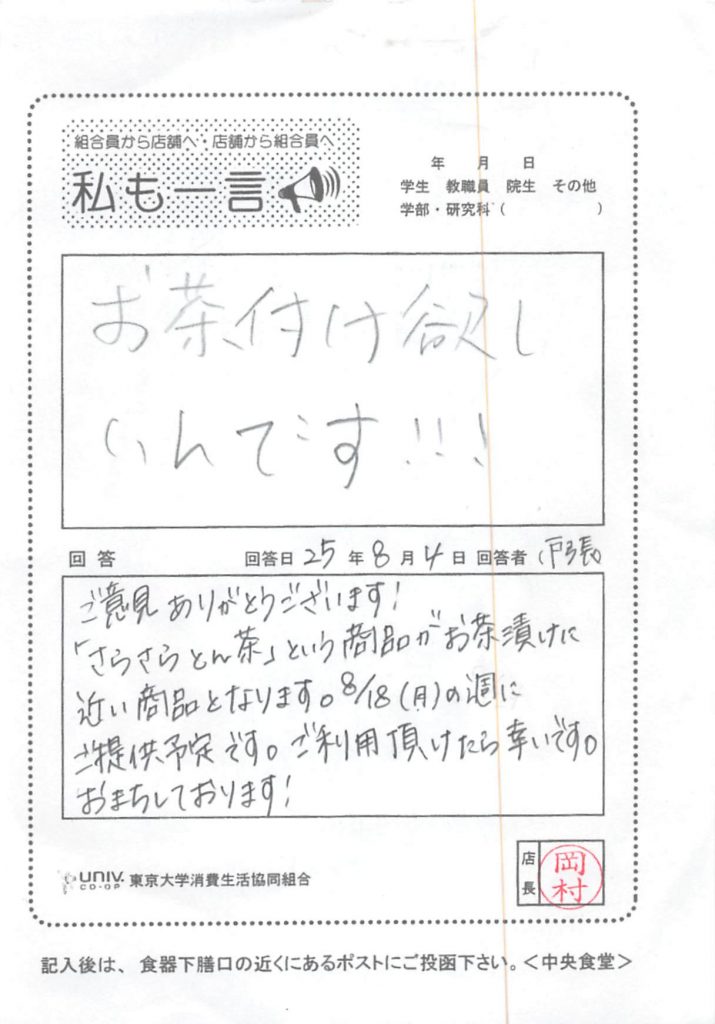 組合員から店舗へ・店舗から組合員へ
私も一言
年 月 日
学生 教職員 院生 その他
学部・研究科( )
お茶付け欲し
いんです!!!
回答 回答日 25 年 8 月 4 日 回答者 (戸張)
ご意見ありがとうございます!
「さらさらとん茶」という商品がお茶漬けに
近い商品となります。8/18(月)の週に
ご提供予定です。ご利用頂けたら幸いです。
おまちしております!
UNIV. CO-OP 東京大学消費生活協同組合
店長 岡村
記入後は、食器下膳口の近くにあるポストにご投函下さい。<中央食堂>